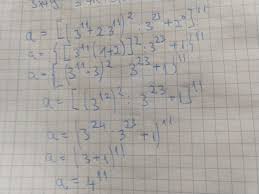 a = [(3¹¹+2·3¹¹)² : 3²³ + 2⁰]¹¹
a = {[3¹¹(1+2)]² : 3²³ + 1}¹¹
a = [(3¹¹·3)² : 3²³ + 1]¹¹
a = [(3¹²)² : 3²³ + 1]¹¹
a = (3²⁴ : 3²³ + 1)¹¹
a = (3+1)¹¹
a = 4¹¹